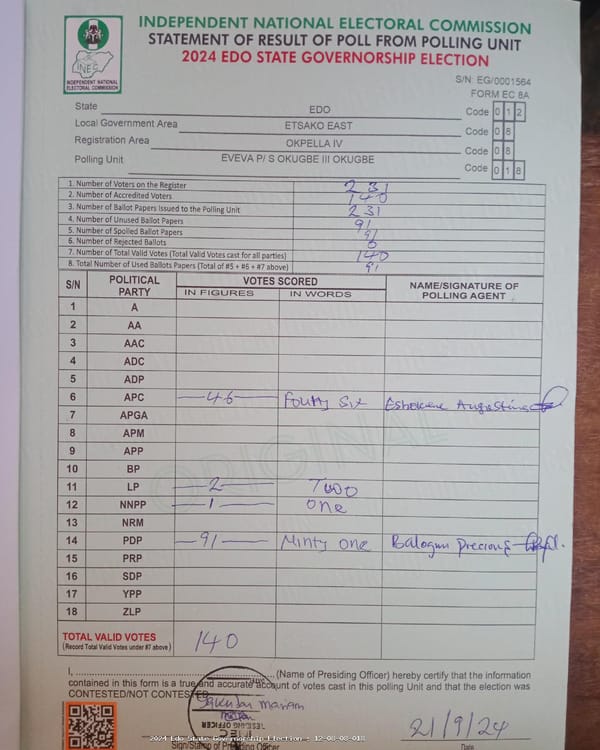 INDEPENDENT NATIONAL ELECTORAL COMMISSION
STATEMENT OF RESULT OF POLL FROM POLLING UNIT
2024 EDO STATE GOVERNORSHIP ELECTION
INEC
INDEPENDENT NATIONAL ELECTORAL COMMISSION
S/N: EG/0001564
FORM EC 8A
State EDO Code 0 1 2
Local Government Area ETSAKO EAST Code 0 8
Registration Area OKPELLA IV Code 0 8
Polling Unit EVEVA P/ S OKUGBE III OKUGBE Code 0 1 8
1. Number of Voters on the Register 231
2. Number of Accredited Voters 140
3. Number of Ballot Papers Issued to the Polling Unit 231
4. Number of Unused Ballot Papers 91
5. Number of Spoiled Ballot Papers 91
6. Number of Rejected Ballots 0
7. Number of Total Valid Votes (Total Valid Votes cast for all parties) 140
8. Total Number of Used Ballots Papers (Total of #5 + #6 + #7 above) 91
S/N POLITICAL PARTY VOTES SCORED NAME/SIGNATURE OF POLLING AGENT
IN FIGURES IN WORDS
1 A
2 AA
3 AAC
4 ADC
5 ADP
6 APC 46 Foutty Six Augustine
7 APGA
8 APM
9 APP
10 BP
11 LP 2 Two
12 NNPP 1 One
13 NRM
14 PDP 91 Ninty One Balogun Precious
15 PRP
16 SDP
17 YPP
18 ZLP
ORIGINAL
TOTAL VALID VOTES 140
(Record Total Valid Votes under #7 above)
I, (Name of Presiding Officer) hereby certify that the information
contained in this form is a true and accurate account of votes cast in this polling Unit and that the election was
CONTESTED/NOT CONTESTED
PRESIDING OFFICER
INEC
21/9/24
Sign/Stamp of Presiding Officer Date
2024 Edo State Governorship Election - 12-08-08-018